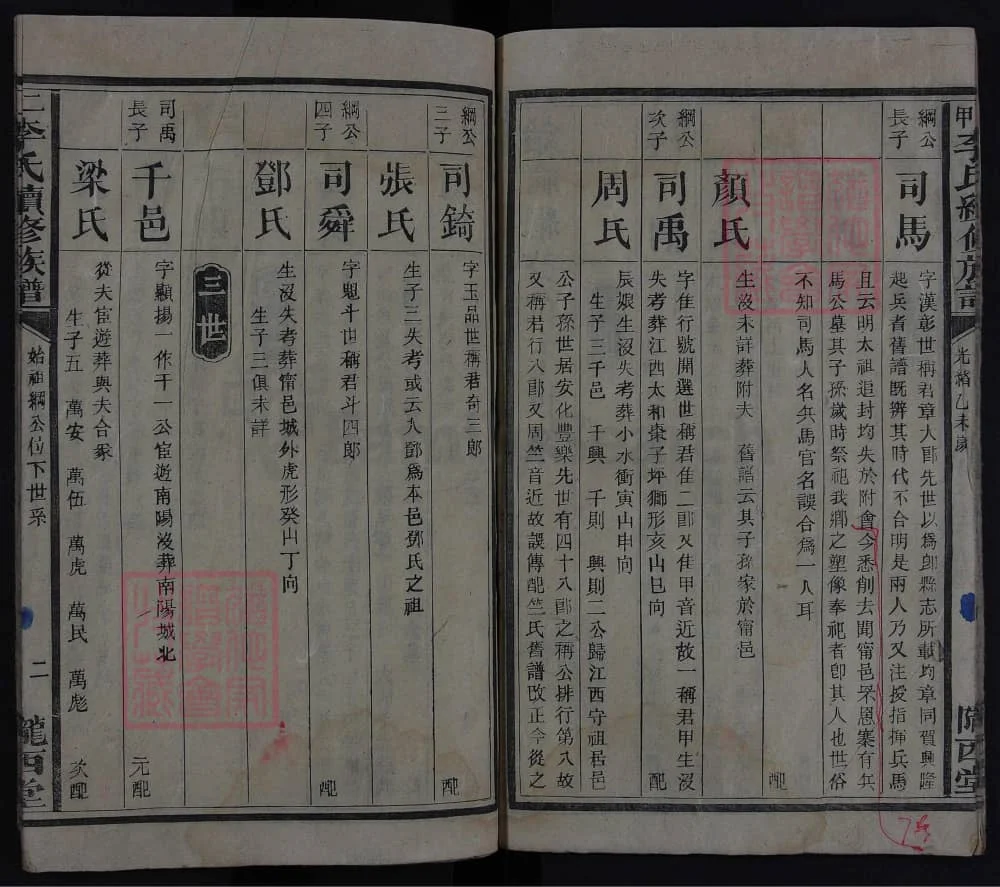 李氏續修族譜
光緒乙未歲
隴西堂
綱公
長子
司馬
字漢彰世稱君章大郎先世以為卽縣志所載均章同賀興隆
起兵者舊譜既辨其時代不合明是兩人乃又注授指揮兵馬
且云明太祖追封均失於附會今悉削去聞甯邑杲恩寨有兵
馬公墓其子孫歲時祭祀我鄉之塑像奉祀者卽其人也世俗
不知司馬人名兵馬官名誤合為一人耳
配
顏氏
生沒未詳葬附夫 舊譜云其子孫家於甯邑
綱公
次子
司禹
字隹行號開選世稱君隹二郎又隹甲音近故一稱君甲生沒
失考葬江西太和棗子坪獅形亥山巳向
配
周氏
辰娘生沒失考葬小水衝寅山申向
生子三千邑 千興 千則 興則二公歸江西守祖居邑
公子孫世居安化豐樂先世有四十八郎之稱公排行第八故
又稱君行八郎又周竺音近故誤傳配竺氏舊譜改正今從之
綱公
三子
司錡
字玉品世稱君奇三郎
配
張氏
生子三失考或云入鄧為本邑鄧氏之祖
綱公
四子
司舜
字魁斗世稱君斗四郎
配
鄧氏
生沒失考葬甯邑城外虎形癸山丁向
生子三俱未詳
三世
司禹
長子
千邑
字顯揚一作千一公宦遊南陽沒葬南陽城北
元配
梁氏
從夫宦遊葬與夫合冢
生子五 萬安 萬伍 萬虎 萬民 萬彪
次配
李氏續修族譜
始祖綱公位下世系
二
隴西堂